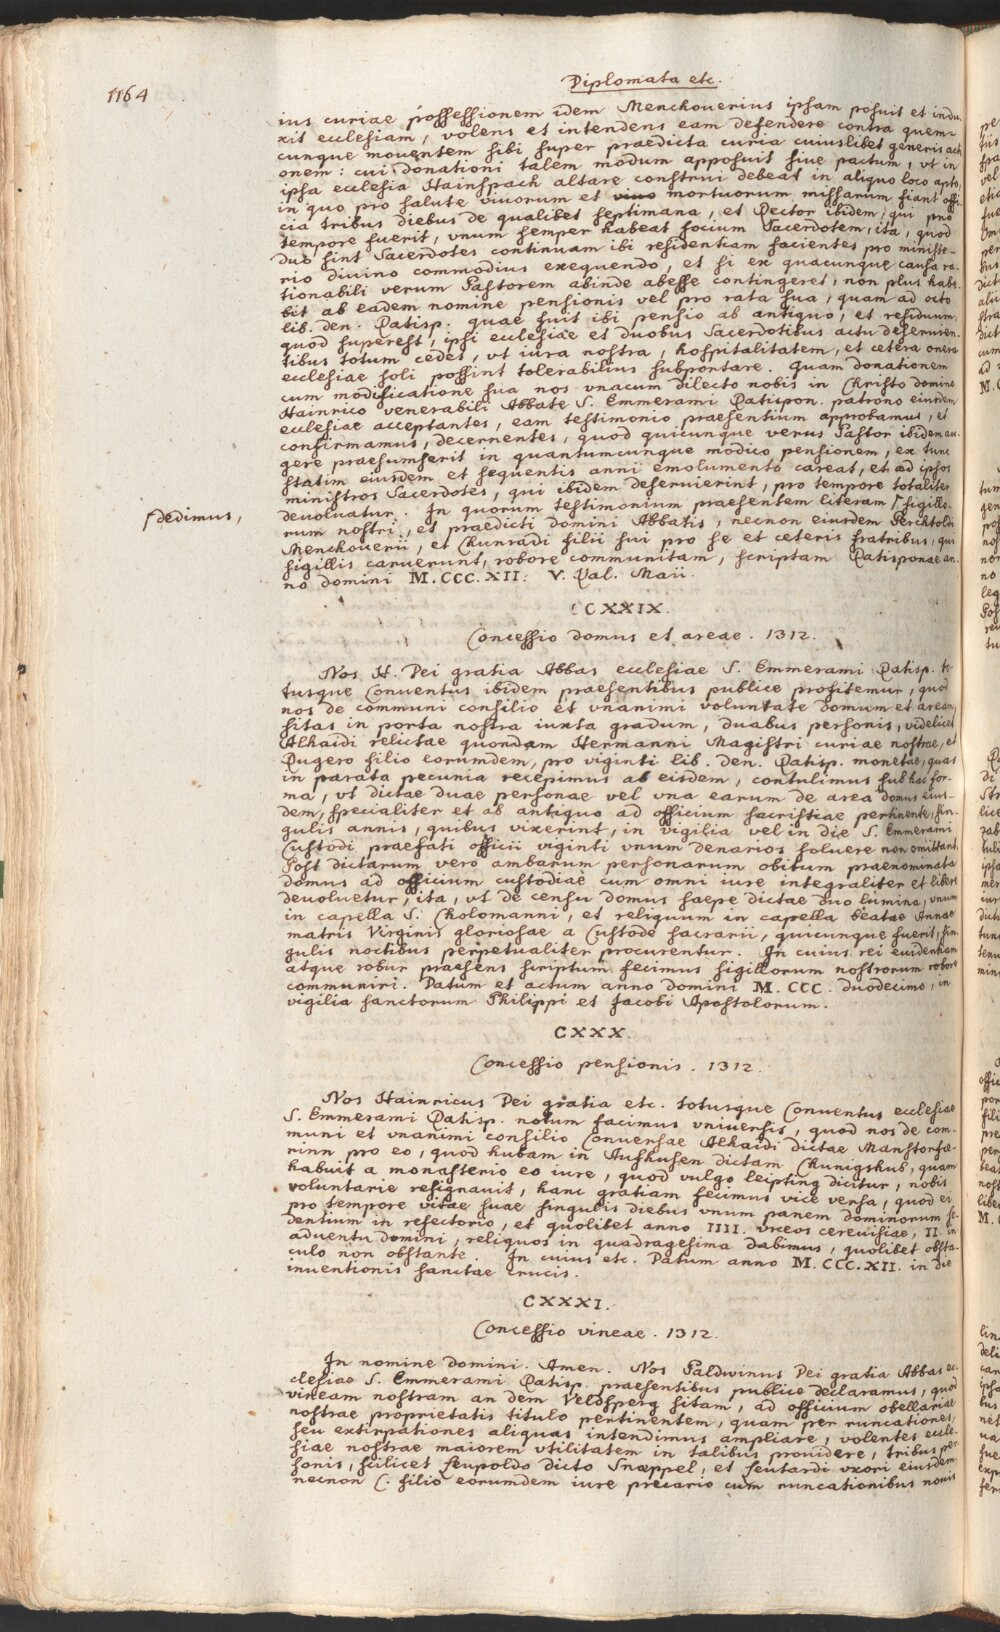 1164
Diplomata etc.
ius curiae possessionem idem Menckouerius ipsam posuit et indu-
xit ecclesiam, volens et intendens eam defendere contra quem-
cunque mouentem sibi super praedicta curia cuiuslibet generis acti
onem: cui donationi talem modum apposuit siue pactum, vt in
ipsa ecclesia Hainspach altare construi debeat in aliquo loco apto,
in quo pro salute viuorum et mortuorum missarum fiant offi-
cia tribus diebus de qualibet septimana, et Rector ibidem, qui pro
tempore fuerit, vnum semper habeat socium Sacerdotem, ita, quod
duo sint Sacerdotes continuam ibi residentiam facientes pro ministe-
rio diuino commodius exequendo, et si ex quacunque causa ra-
tionabili verum Pastorem abinde abesse contingeret, non plus habe-
bit ab eadem nomine pensionis vel pro rata sua, quam ad octo
lib. den. Ratisp. quae fuit ibi pensio ab antiquo, et residuum,
quod superest, ipsi ecclesiae et duobus Sacerdotibus actu deseruien-
tibus totum cedet, vt iura nostra, hospitalitatem, et cetera onera
ecclesiae soli possint tolerabilius subportare. Quam donationem
cum modificatione sua nos vnacum dilecto nobis in Christo domino
Hainrico venerabili Abbate S. Emmerami Ratispon. patrono eiusdem
ecclesiae acceptantes, eam testimonio praesentium approbamus, et
confirmamus, decernentes, quod quicunque verus Pastor ibidem au-
gere praesumserit in quantumcunque modico pensionem, ex tunc
statim eiusdem et sequentis annii emolumento careat, et ad ipsos
ministros Sacerdotes, qui ibidem deseruierint, pro tempore totaliter
deuoluatur. In quorum testimonium praesentem literam ſ sigillo-
ſ dedimus,
rum nostri, et praedicti domini Abbatis, necnon eiusdem Perchtoldi
Menckouerii, et Chunradi filii sui pro se et ceteris fratribus, qui
sigillis caruerunt, robore communitam, scriptam Ratisponae an-
no domini M.CCC.XII. V. Kal. Maii.
CXXIX.
Concessio domus et areae. 1312.
Nos H. Dei gratia Abbas ecclesiae S. Emmerami Ratisp. to-
tusque Conuentus ibidem praesentibus publice profitemur, quod
nos de communi consilio et vnanimi voluntate domum et aream,
sitas in porta nostra iuxta gradum, duabus personis, videlicet
Alhaidi relictae quondam Hermanni Magistri curiae nostrae, et
Rugero filio eorumdem, pro viginti lib. den. Ratisp. monetae, quas
in parata pecunia recepimus ab eisdem, contulimus sub hac for-
ma, vt dictae duae personae vel vna earum de area domus eius-
dem, specialiter et ab antiquo ad officium sacristiae pertinente, sin-
gulis annis, quibus vixerint, in vigilia vel in die S. Emmerami
Custodi praefati officii viginti vnum denarios soluere non omittant.
Post dictarum vero ambarum personarum obitum praenominata
domus ad officium custodiae cum omni iure integraliter et libere
deuoluetur, ita, vt de censu domus saepe dictae duo lumina, vnum
in capella S. Cholomanni, et reliquum in capella beatae Annae
matris Virginis gloriosae a Custode sacrarii, quicunque fuerit, sin-
gulis noctibus perpetualiter procurentur. In cuius rei euidentiam
atque robur praesens scriptum fecimus sigillorum nostrorum robore
communiri. Datum et actum anno domini M. CCC. duodecimo, in
vigilia sanctorum Philippi et Jacobi Apostolorum.
CXXX.
Concessio pensionis. 1312.
Nos Hainricus Dei gratia etc. totusque Conuentus ecclesiae
S. Emmerami Ratisp. notum facimus vniuersis, quod nos de com-
muni et vnanimi consilio Conuersae Alhaidi dictae Manstorfe-
rinn pro eo, quod hubam in Aufhusen dictam Chunigshub, quam
habuit a monasterio eo iure, quod vulgo leipting dicitur, nobis
voluntarie resignauit, hanc gratiam fecimus vice versa, quod ei
pro tempore vitae suae singulis diebus vnum panem dominorum se-
dentium in refectorio, et quolibet anno IIII. vrceos cereuisiae, II. in
aduentu domini, reliquos in quadragesima dabimus, quolibet obsta-
culo non obstante. In cuius etc. Datum anno M.CCC.XII. in die
inuentionis sanctae crucis.
CXXXI.
Concessio vineae. 1312.
In nomine domini. Amen. Nos Paldwinus Dei gratia Abbas ec-
clesiae S. Emmerami Ratisp. praesentibus publice declaramus, quod
vineam nostram an dem Veldsperg sitam, ad officium obellariae
nostrae proprietatis titulo pertinentem, quam per runcationes,
seu extirpationes aliquas intendimus ampliare, volentes eccle-
siae nostrae maiorem vtilitatem in talibus prouidere, tribus per-
sonis, scilicet Leupoldo dicto Snæppel, et Leutardi vxori eiusdem,
necnon C. filio eorumdem iure precario cum runcationibus nouis